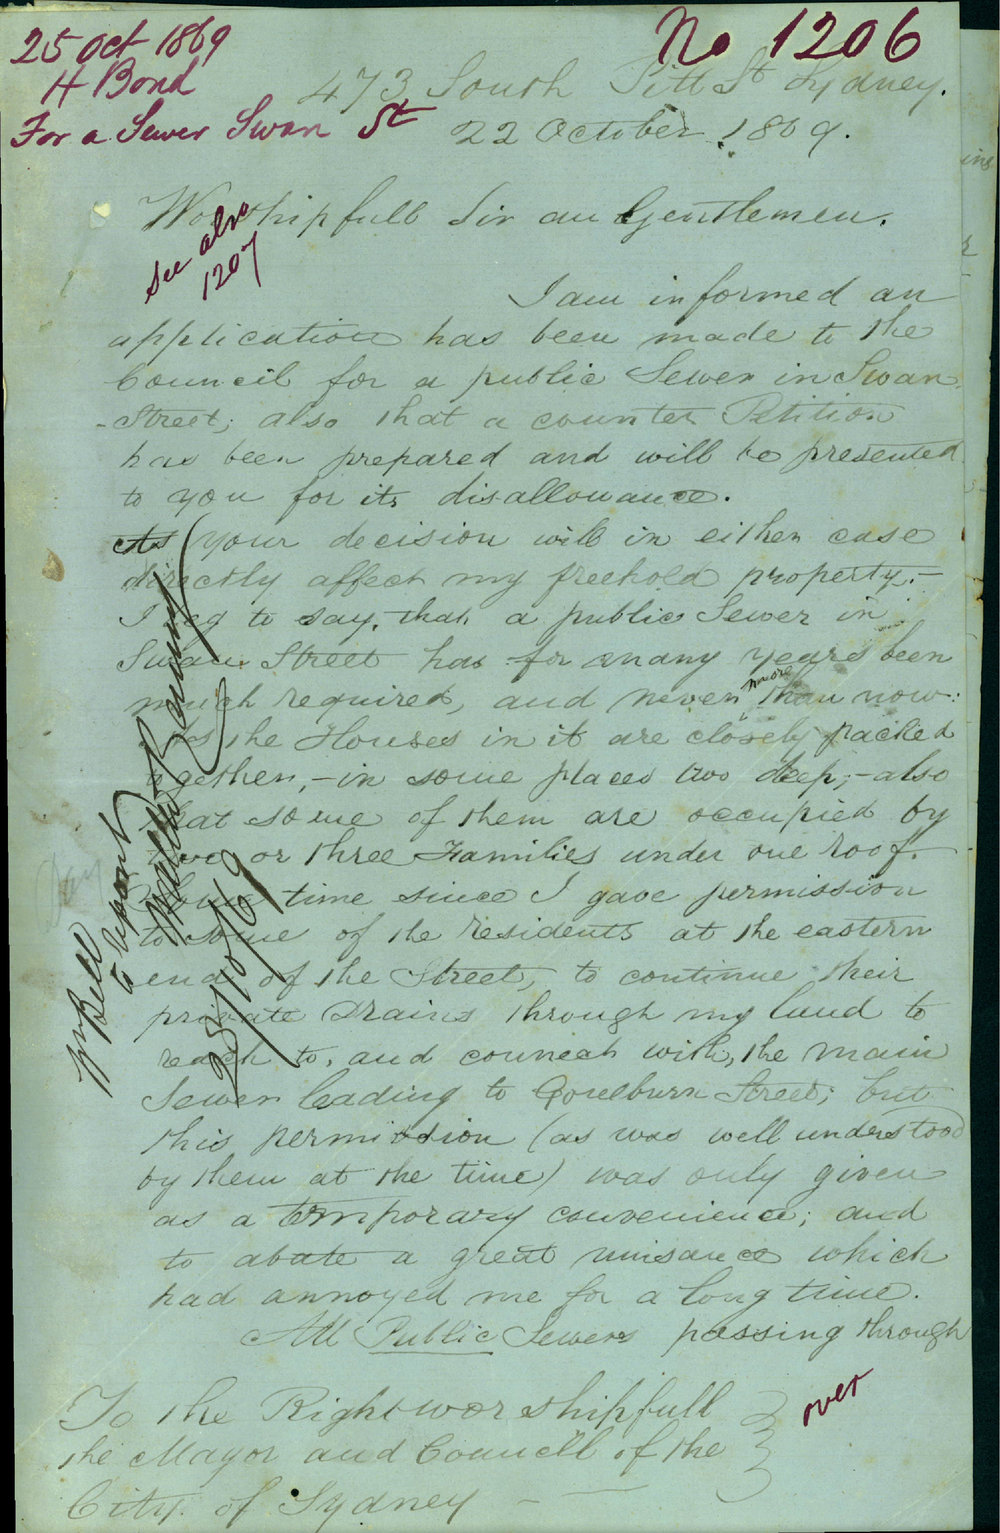 25 Oct 1869
H Bond
For a Sewer Swan St
No 1206
473 South Pitt St Sydney.
22 October 1869.
Worshipfull Sir an Gentlemen.
See also
1207
I am informed an
application has been made to the
Council for a public Sewer in Swan
-Street; also that a counter Petition
has been prepared and will be presented
to you for its disallowance.
As your decision will in either case
directly affect my freehold property.-
I beg to say, that, a public Sewer in
Swan Street has for many years been
much required, and never more than now:
As the Houses in it are closely packed
together, - in some places two deep; - also
that some of them are occupied by
two or three Families under one roof.
Some time since I gave permission
to some of the residents at the eastern
end of the Street, to continue their
private drains through my land to
reach to, and conneat with, the main
Sewer leading to Goulburn Street; but
this permission (as was well understood
by them at the time) was only given
as a temporary convenience; and
to abate a great nuisance which
had annoyed me for a long time.
All Public Sewers passing through
Mr Bell
to report
25/10/69
To the Right worshipfull
the Mayor and Council of the
City of Sydney
over